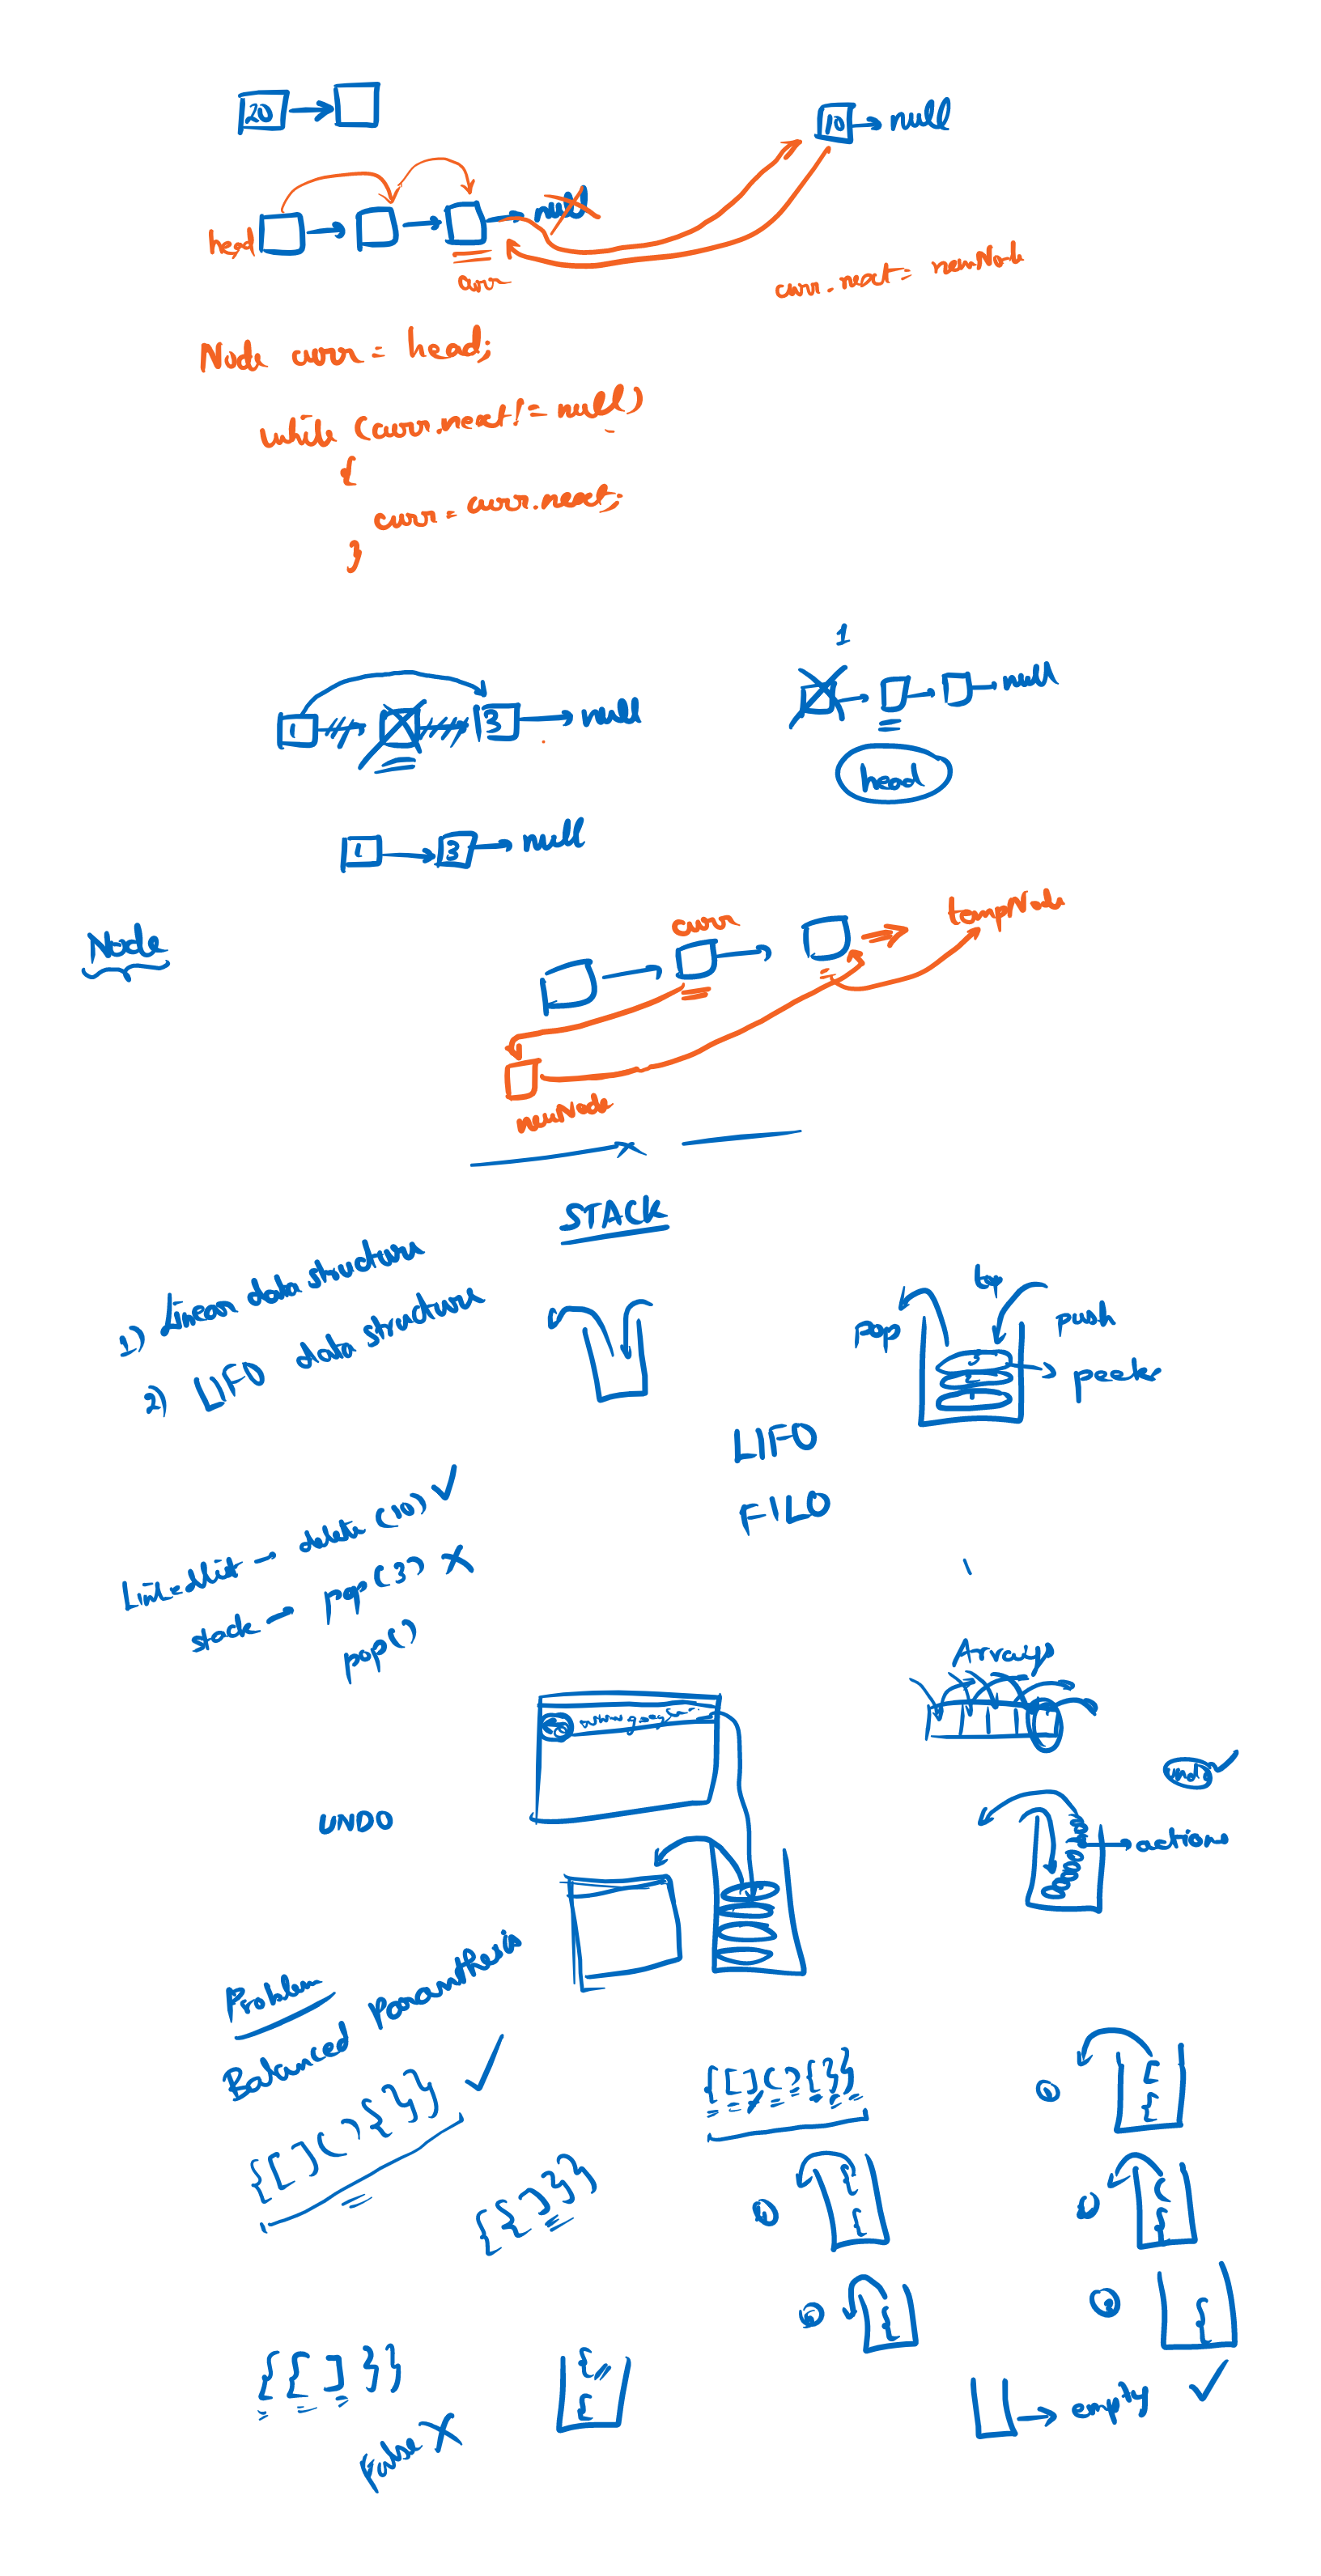 20
10 → null
head → → → null
curr
curr.next = newNode
Node curr = head;
while (curr.next != null)
{
curr = curr.next;
}
1
1 3 → null
→ → → null
head
1 → 3 → null
Node
curr
tempNode
newNode
STACK
1) Linear data structure
2) LIFO data structure
top
pop
push
3
2
1
→ peek
LIFO
FILO
Linkedlist → delete (10) ✓
stack → pop (3) X
pop()
Arrays
undo ✓
UNDO
→ actions
Problem
Balanced Paranthesis
{[](){}} ✓
{[](){}}
[
{
{{]}}
{
{
(
{
{
{
{{]}}
{
{
→ empty ✓
False X